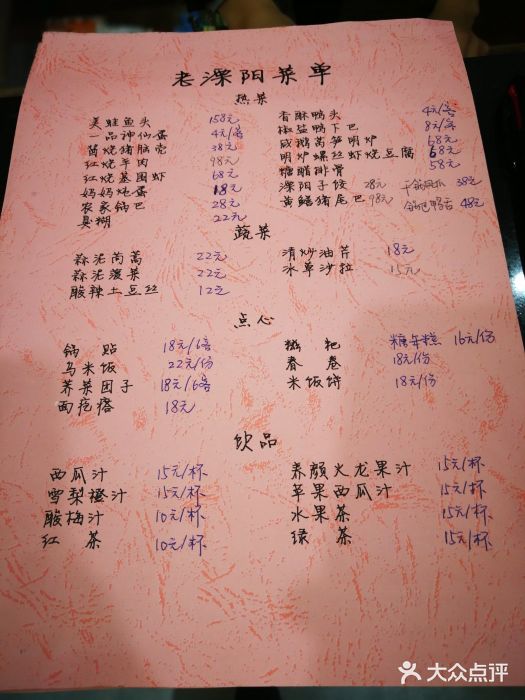 老溧阳菜单
热菜
美蛙鱼头 158元
一品神仙蛋 4元/客
茵烧猪脑壳 38元
红烧羊肉 98元
红烧基围虾 68元
妈妈炖蛋 18元
农家锅巴 28元
臭糊 22元
香酥鸭头 4元/客
椒盐鸭下巴 8元/客
咸鹅莴笋明炉 68元
明炉螺丝虾烧豆腐 68元
糖醋排骨 58元
溧阳子饺 28元
黄鳝猪尾巴 98元
38元
锅巴鸭舌 48元
蔬菜
蒜泥茼蒿 22元
蒜泥菠菜 22元
酸辣土豆丝 12元
清炒油芹 18元
水草沙拉 15元
点心
锅贴 18元/6客
乌米饭 22元/份
荠菜团子 18元/6客
面疙瘩 18元
糍粑 糖年糕 16元/份
春卷 18元/份
米饭饼 18元/份
饮品
西瓜汁 15元/杯
雪梨橙汁 15元/杯
酸梅汁 10元/杯
红茶 10元/杯
养颜火龙果汁 15元/杯
苹果西瓜汁 15元/杯
水果茶 15元/杯
绿茶 15元/杯
大众点评